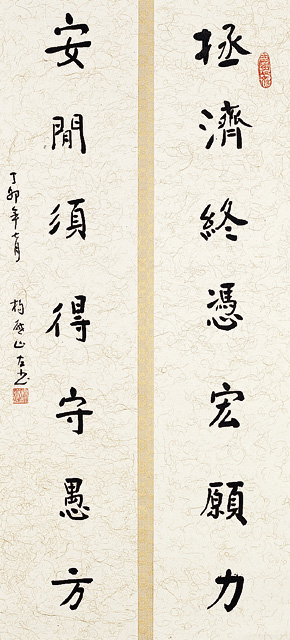 拯濟終憑宏願力
安閒須得守愚方
丁卯年七月